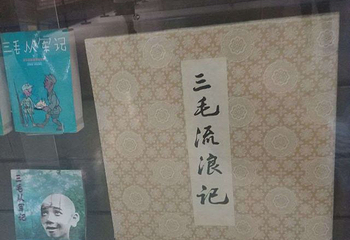 三毛从军记
三毛流浪记
三毛从军记